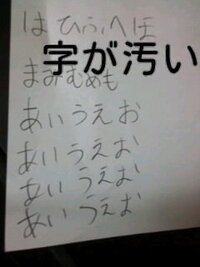 はひふへほ
字が汚い
まみむめも
あいうえお
あいうえお
あいうえお
あいうえお